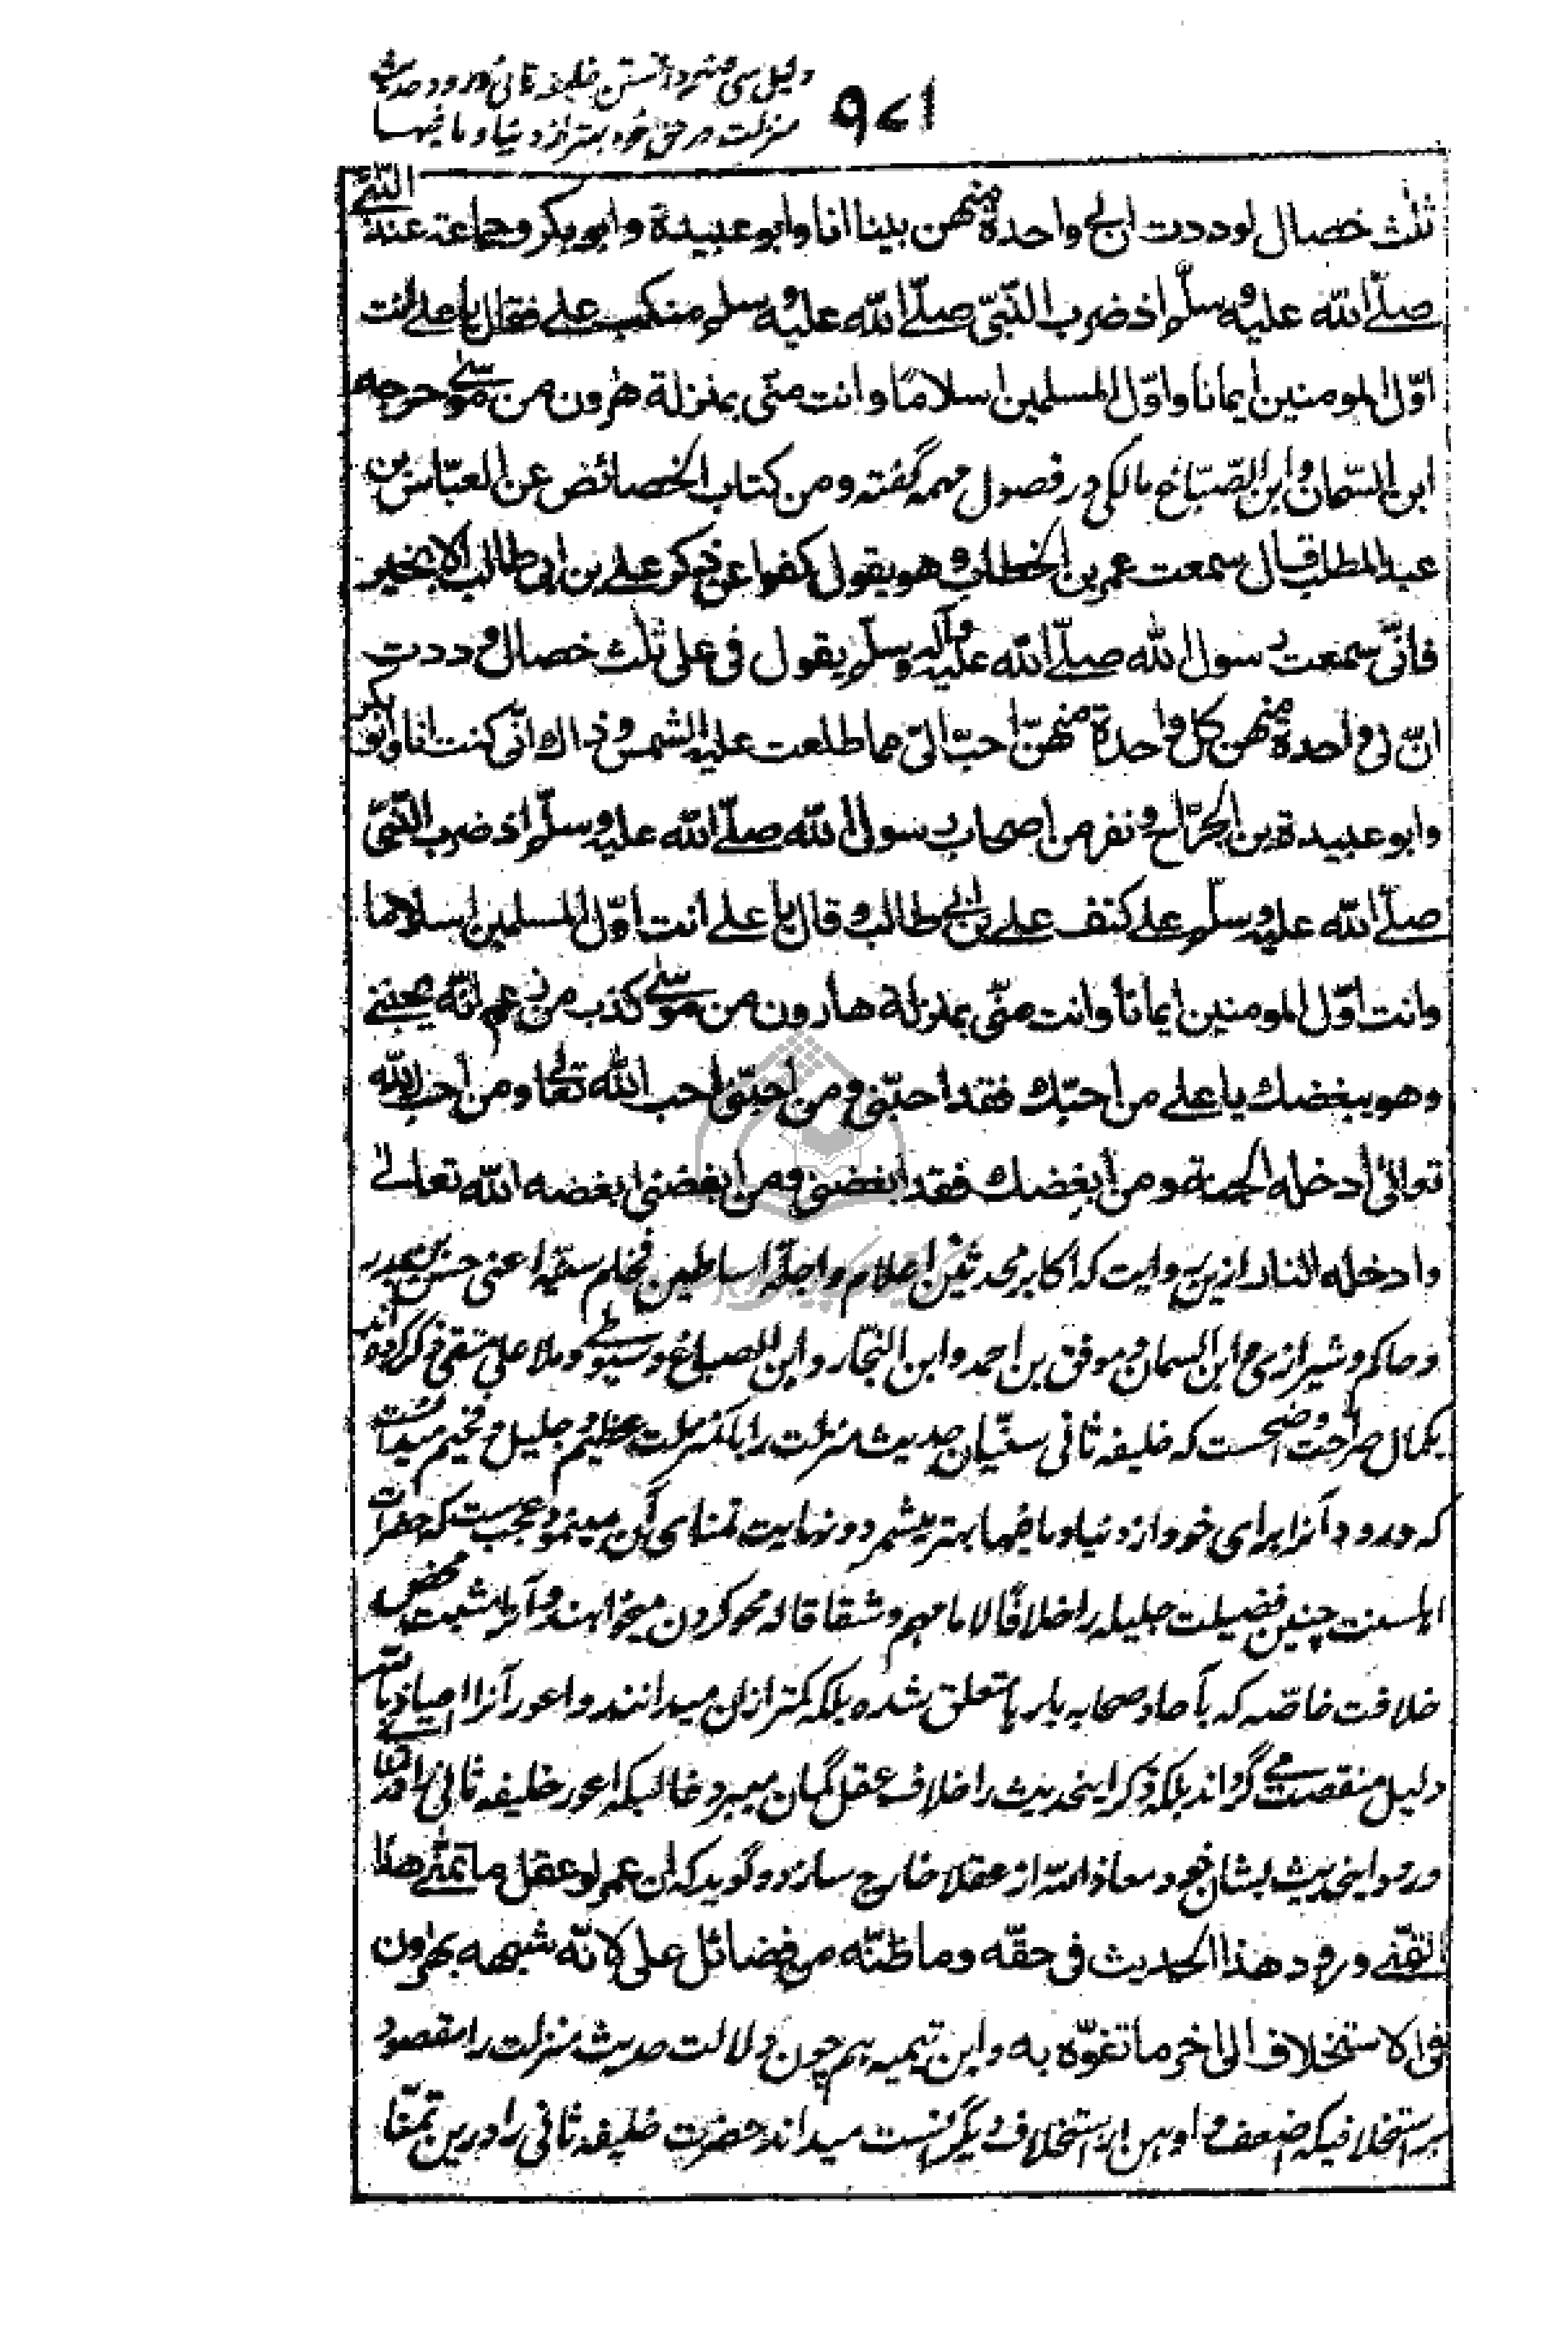 دلیل سی منبر دانستن خلیفهٔ ثانی ورود حدیث
منزلت در حق خود بهتر از دنیا و ما فیها
۹۷۱
ثلث خصال لوددت ان لی واحدة منهن بینا انا وابو عبیدة وابو بکر وجماعة عند النّبی
صلّی الله علیه وسلّم اذ ضرب النّبیّ صلّی الله علیه وسلم منکب علی فقال یا علی انت
اوّل المومنین ایمانا واوّل المسلمین اسلامًا وانت منّی بمنزلة هٰرون من موسٰی خرجه
ابن السّمان وابن الصّبّاغ مالکی در فصول مهمه گفته ومن کتاب الخصائص عن العبّاس بن
عبد المطلب قال سمعت عمر بن الخطاب وهو یقول کفوا عن ذکر علی بن ابی طالب الا بخیر
فانّی سمعت رسول الله صلّی الله علیه وآله وسلّم یقول فی علی ثلث خصال وددت
انّ لی واحدة منهن کل واحدة منهنّ احبّ الیّ مما طلعت علیه الشمس وذاك انّی کنت انا وابو بکر
وابو عبیدة بن الجرّاح ونفر من اصحاب رسول الله صلّی الله علیه وسلّم اذ ضرب النّبیّ
صلّی الله علیه وسلّم علی کتف علی بن ابی طالب وقال یا علی انت اوّل المسلمین اسلاما
وانت اوّل المومنین ایمانا وانت منّی بمنزلة هارون من موسٰی کذب من زعم انّه یحبنی
وهو یبغضك یا علی من احبّك فقد احبّنی ومن احبّنی احب الله تعالٰی ومن احب الله
تعالٰی ادخله الجنة ومن ابغضك فقد ابغضنی ومن ابغضنی ابغضه الله تعالی
وادخله النار ازین روایت که اکابر محدثین اعلام و اجلّه اساطین فخام سنّیه اعنی حسن بن بدر
و حاکم و شیرازی و ابن السمان و موفق بن احمد و ابن النجّار و ابن الصباغ و سیوطی و ملا علی متقی ذکر کرده اند
بکمال صراحت واضحست که خلیفه ثانی سنّیان حدیث منزلت را بالمنزلت عظیم و جلیل و فخیم میدانست
که ورود آنرا برای خود از دنیا و ما فیها بهتر میشمرد و نهایت تمنای آن مینمود عجبست که حضرات
اهلسنت چنین فضیلت جلیله را خلافًا لامامهم و شقاقا له محو کردن میخواهند و آنرا مثبت محض
خلافت خاصّه که بآحاد صحابه بارها متعلق شده بلکه کمتر ازان میدانند و اعور آنرا عیاذا بالله
دلیل منقصت می گرداند بلکه ذکر اینحدیث را خلاف عقل گمان میبرد حالیکه اعور خلیفه ثانی را در تمنای
ورود اینحدیث بشان خود معاذ الله از عقلا خارج سازد و گوید که ان عمر لو عقل ما تمنّی هذا
التمنّی ورود هذا الحدیث فی حقّه وما ظنّه من فضائل علی لانّه شبهه بهرون
فی الاستخلاف الی اخر ما تفوّه به و ابن تیمیه هم چون دلالت حدیث منزلت را مقصود
بر استخلافیکه اضعف و اوهن از استخلاف دیگرانست میداند حضرت خلیفه ثانی را درین تمنّا